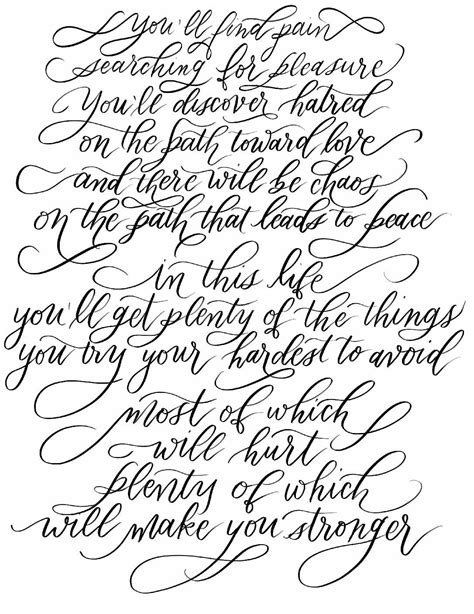 you'll find pain
searching for pleasure
You'll discover hatred
on the path toward love
and there will be chaos
on the path that leads to peace
in this life
you'll get plenty of the things
you try your hardest to avoid
most of which
will hurt
plenty of which
will make you stronger